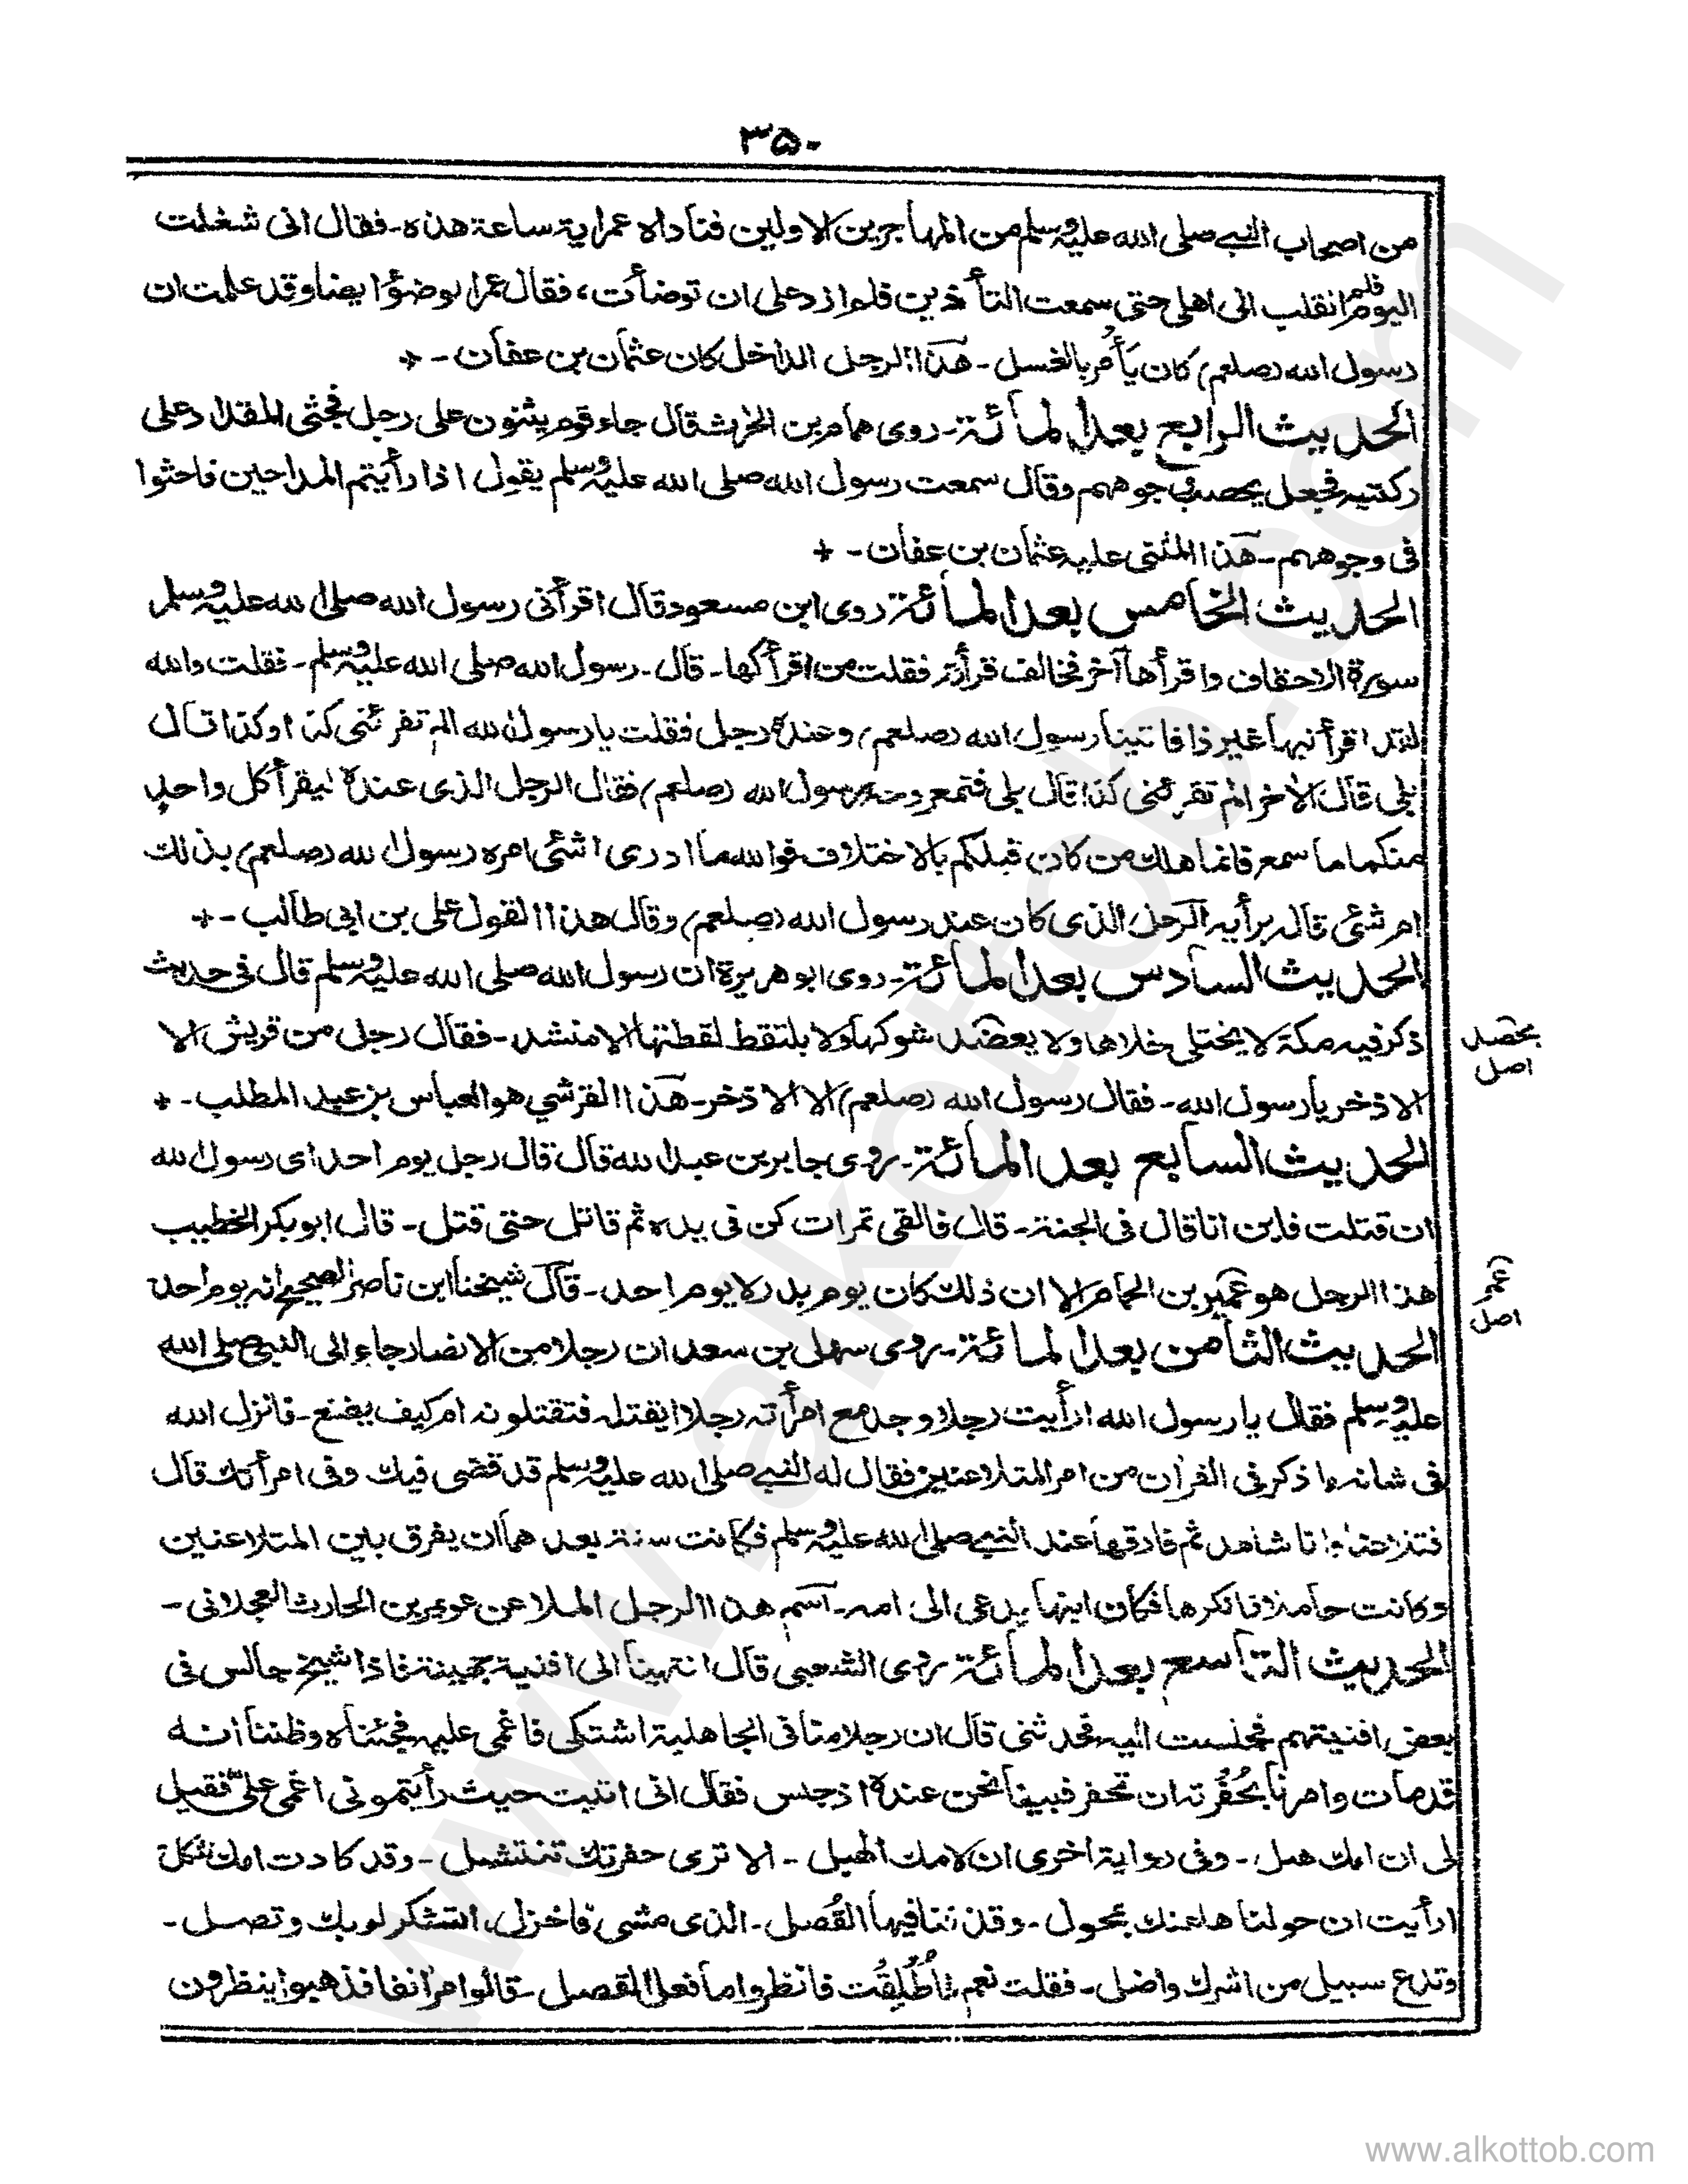 ۳۵۰
من اصحاب النبي صلى الله عليه وسلم من المهاجرين الاولين فناداه عمر اية ساعة هذه - فقال انى شغلت
اليوم فلم انقلب الى اهلى حتى سمعت التأذين فلم ازد على ان توضأت، فقال عمر الوضؤ ايضا وقد علمت ان
رسول الله (صلعم) كان يأمر بالغسل - هذا الرجل الداخل كان عثمان بن عفان - +
الحديث الرابع بعد المائة - روى همام بن الحرث قال جاء قوم يثنون على رجل فجثى المقداد على
ركبتيه فجعل يحصب في جوههم وقال سمعت رسول الله صلى الله عليه وسلم يقول اذا رأيتم المداحين فاحثوا
فى وجوههم - هذا المثنى عليه عثمان بن عفان - +
الحديث الخامس بعد المائة روى ابن مسعود قال اقرأنى رسول الله صلى الله عليه وسلم
سورة الاحقاف واقرأها آخر فخالف قرأته فقلت من اقرأكها - قال - رسول الله صلى الله عليه وسلم - فقلت والله
لقد اقرأنيها غير ذا فاتينا رسول الله (صلعم) وعنده رجل فقلت يا رسول الله الم تقرئنى كذا وكذا قال
بلى قال الآخر الم تقرئنى كذا قال بلى فتمعر وجه رسول الله (صلعم) فقال الرجل الذى عنده ليقرأ كل واحد
منكما ما سمع فانما هلك من كان قبلكم بالاختلاف فوالله ما ادرى اشئى امره رسول الله (صلعم) بذلك
ام شئى قاله برأيه الرجل الذى كان عند رسول الله (صلعم) وقال هذا القول على بن ابى طالب - +
الحديث السادس بعد المائة - روى ابو هريرة ان رسول الله صلى الله عليه وسلم قال فى حديث
ذكر فيه مكة لا يختلى خلاها ولا يعضد شوكها ولا يلتقط لقطتها الا منشد - فقال رجل من قريش الا
يحصد
اصل
الاذخر يا رسول الله - فقال رسول الله (صلعم) الا الاذخر - هذا القرشي هو العباس بن عبد المطلب - +
الحديث السابع بعد المائة - روى جابر بن عبد الله قال قال رجل يوم احد اى رسول الله
ان قتلت فاين انا قال فى الجنة - قال فالقى تمرات كن فى يده ثم قاتل حتى قتل - قال ابو بكر الخطيب
هذا الرجل هو عمير بن الحمام الا ان ذلك كان يوم بدر لا يوم احد - قال شيخنا ابن ناصر الصحيح انه يوم احد
(عمر)
اصل
الحديث الثامن بعد المائة - روى سهل بن سعد ان رجلا من الانصار جاء الى النبي صلى الله
عليه وسلم فقال يا رسول الله ارأيت رجلا وجد مع امرأته رجلا ايقتله فتقتلونه ام كيف يصنع - فانزل الله
فى شانه ما ذكر فى القرآن من امر المتلاعنين فقال له النبي صلى الله عليه وسلم قد قضى فيك وفى امرأتك قال
فتلاعنا وانا شاهد ثم فارقها عند النبي صلى الله عليه وسلم فكانت سنة بعد هما ان يفرق بين المتلاعنين
وكانت حاملا فانكرها فكان ابنها يدعى الى امه - اسم هذا الرجل الملاعن عويمر بن الحارث العجلانى -
الحديث التاسع بعد المائة روى الشعبى قال انتهينا الى افنية جهينة فاذا شيخ جالس فى
بعض افنيتهم فجلست اليه فحدثنى قال ان رجلا منا فى الجاهلية اشتكى فاغمى عليه فجئناه وظننا انه
قد مات وامرنا بحفرته ان تحفر فبينا نحن عنده اذ جلس فقال انى اتيت حيث رأيتمونى اغمى علىّ فقيل
لى ان امك هبل - وفى رواية اخرى ان لامك الهبل - الا ترى حفرتك تنتثل - وقد كادت امك تثكل
ارأيت ان حولنا ها عنك بمحول - وقذفنا فيها القُصل - الذى مشى فاخزل، اتشكر لربك وتصل -
وتدع سبيل من اشرك واضل - فقلت نعم فاُطْلِقْت فانظروا ما فعل القصل - قالوا مر انفا فذهبوا ينظرون
www.alkottob.com
www.alkottob.com